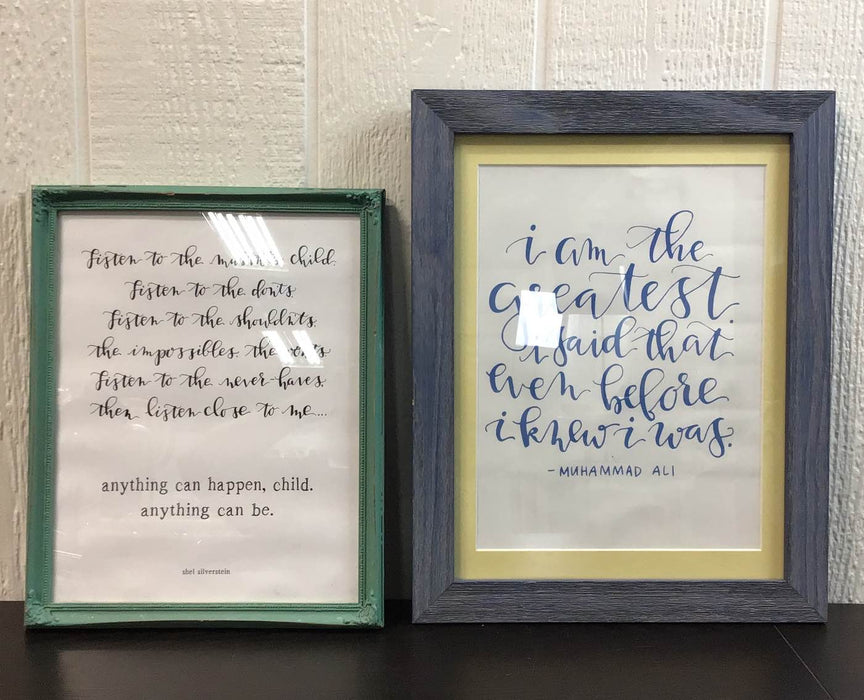 listen to the mustn'ts child.
listen to the don'ts.
listen to the shouldn'ts.
the impossibles. the won'ts
listen to the never haves.
then listen close to me...
anything can happen, child.
anything can be.
shel silverstein
i am the
greatest.
i said that
even before
i knew i was.
-MUHAMMAD ALI